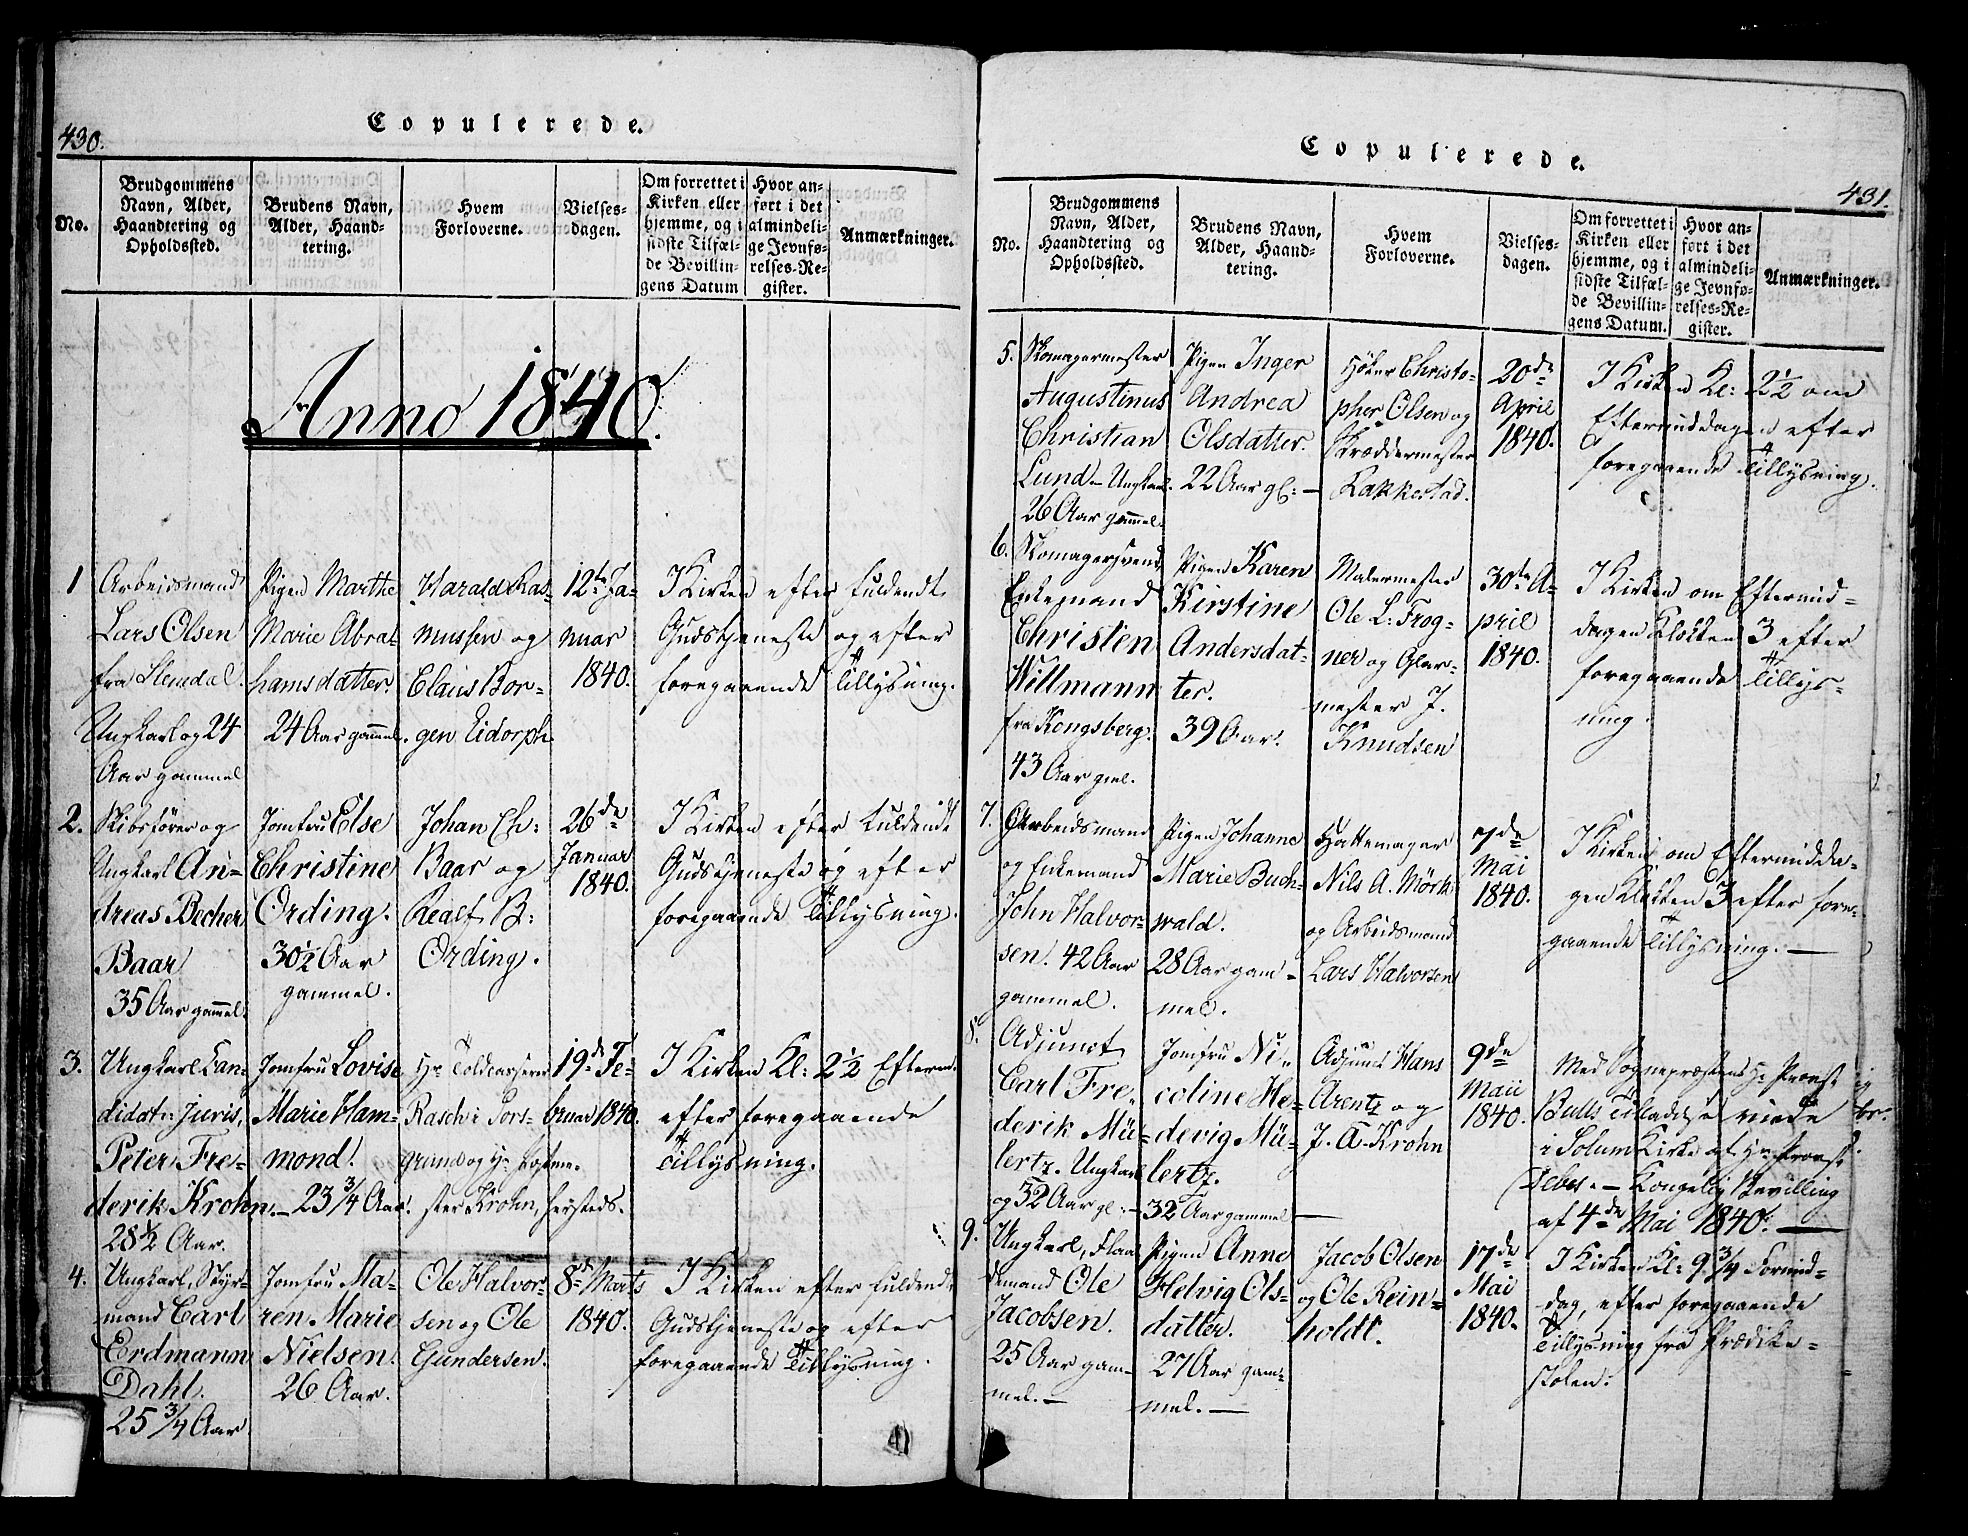 430.
Copulerede.
No.
Brudgommens
Navn, Alder,
Haandtering og
Opholdssted.
Brudens Navn,
Alder, Haand-
tering.
Hvem
Forloverne.
Vielses-
dagen.
Om forrettet i
Kirken eller
hjemme, og i
sidste Tilfæl-
de Bevillin-
gens Datum
Hvor an-
ført i det
almindeli-
ge Jevnfø-
relses-Re-
gister.
Anmærkninger.
Anno 1840.
1
Arbeidsmand
Lars Olsen
fra Slemdal.
Ungkarl og 24
Aar gammel
Pigen Marthe
Marie Abra-
hamsdatter.
24 Aar gammel.
Harald Ras-
mussen og
Claus Bor-
gen Eidorph
12te Ja-
nuar
1840.
I Kirken efter fuldendt
Gudstjeneste og efter
foregaaende Tillysning.
2.
Skibsfører og
Ungkarl An-
dreas Becher
Baar
35 Aar gammel.
Jomfru Else
Christine
Ording.
30 1/2 Aar
gammel.
Johan Ch:
Baar og
Realf B:
Ording.
26de
Januar
1840.
I Kirken efter fuldendt
Gudstjeneste og efter
foregaaende Tillysning.
3.
Ungkarl Can-
didat: Juris,
Peter Fre-
derik Krohn.
28 1/2 Aar.
Jomfru Lovise
Marie Ham-
mond.
23 3/4 Aar.
Hr Toldcasserer
Rasch i Pors-
grund og Hr
ster Krohn, hersteds.
19de Fe-
bruar 1840.
I Kirken Kl: 2 1/2 Efterm.
efter foregaaende
Tillysning.
4.
Ungkarl, Styr-
mand Carl
Erdmann
Dahl.
25 3/4 Aar
Jomfru Ma-
ren Marie
Nielsen.
26 Aar.
Ole Halvor-
sen og Ole
Gundersen.
8de Marts
1840.
I Kirken efter fuldendt
Gudstjeneste og efter
foregaaende Tillysning.
431.
Copulerede.
No.
Brudgommens
Navn, Alder,
Haandtering og
Opholdssted.
Brudens Navn,
Alder, Haand-
tering.
Hvem
Forloverne.
Vielses-
dagen.
Om forrettet i
Kirken eller
hjemme, og i
sidste Tilfæl-
de Bevillin-
gens Datum.
Hvor an-
ført i det
almindeli-
ge Jevnfø-
relses-Re-
gister.
Anmærkninger.
5.
Skomagermester
Augustinus
Christian
Lund – Ungkarl.
26 Aar gammel.
Pigen Inger
Andrea
Olsdatter.
22 Aar gl: –
Høker Christo-
pher Olsen og
Skræddermester
Kakkestad.
20de
April
1840.
I Kirken Kl: 2 1/2 om
Eftermiddagen efter
foregaaende Tillysning.
6.
Skomagersvend
Enkemand
Christen
Willmann
fra Kongsberg.
43 Aar gml.
Pigen Karen
Kirstine
Andersdat-
ter.
39 Aar.
Malermester
Ole L: Frog-
ner og Glar-
mester J.
Knudsen
30te A-
pril
1840.
I Kirken om Eftermid-
dagen Klokken 3 efter
foregaaende Tillys-
ning.
7.
Arbeidsmand
og Enkemand
John Halvor-
sen. 42 Aar
gammel.
Pigen Johanne
Marie Buch-
wald.
28 Aar gam-
mel.
Hattemager
Nils A. Mörk
og Arbeidsmand
Lars Halvorsen
7de
Mai
1840.
I Kirken om Eftermidda-
gen Klokken 3 efter fore-
gaaende Tillysning. –
8.
Adjunct
Carl Fre-
derik Mü-
lertz. Ungkarl
og 32 Aar gl: –
Jomfru Ni-
coline He-
devig Mü-
lertz.
32 Aar gammel –
Adjunct Hans
Arentz og
J. A. Krohn
9de
Maii
1840.
Med Sognepræstens Hr Provst
Bulls Tilladelse viede
i Solum Kirke af Hr Provst
Debes. – Kongelig Bevilling
af 4de Mai 1840. –
9.
Ungkarl, Flaa
demand Ole
Jacobsen.
25 Aar gam-
mel. –
Pigen Anne
Helvig Ols-
datter.
27 Aar gam-
mel. –
Jacob Olsen
og Ole Rein-
holdt.
17de
Mai
1840.
I Kirken Kl: 9 3/4 Formid-
dag, efter foregaaende
Tillysning fra Prædike-
stolen.